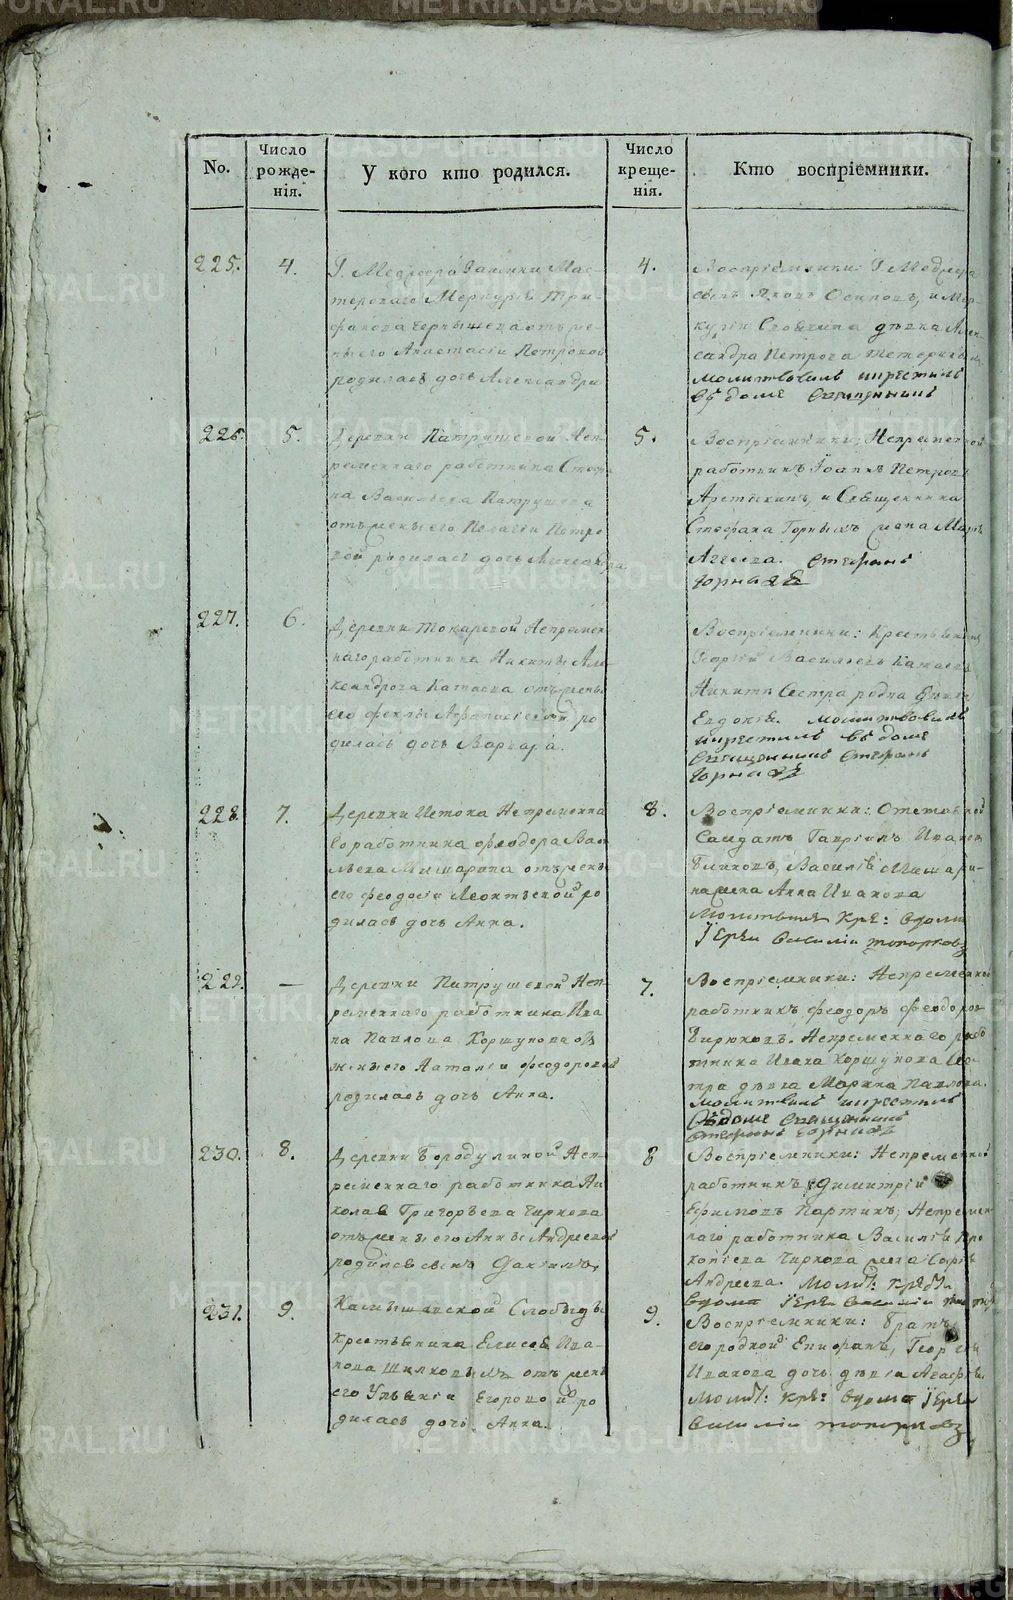 No.
Число рожде-нія.
У кого кто родился.
Число креще-нія.
Кто воспріемники.
225.
4.
родилась дочь Александра
4.
Воспріемники:
Яковъ Осиповъ, и Мер-
дѣвка Алек-
сандра Петрова
молитвилъ и крестилъ
въ доме Священникъ
226.
5.
Деревни Патрушевой Неп-
ременнаго работника Стефа
на Васильева Патрушева
отъ жены его Пелагіи Петро
вой родилась дочь Александра
5.
Воспріемники: Непременной
работникъ Іоаннъ Петровъ
и Священника
Стефана Горныхъ жена Марѳа
Агеева. Стефанъ
Горныхъ
227.
6.
Деревни Токаревой Непремен
наго работника Никиты Але
ксандрова Катаева отъ жены
его Феклы Афанасіевой ро
дилась дочь Варвара.
Воспріемники: Крестьянинъ
Георгій Васильевъ Катаевъ
Никиты Сестра родна дѣвка
Евдокія. молитвовалъ
и крестилъ въ доме
Священникъ Стефанъ
Горныхъ
228.
7.
Деревни Истока Непременна
го работника Феодора Васи
льева Мишарина отъ жены
его Феодосіи Леонтьевой ро
дилась дочь Анна.
8.
Воспріемники: Отставной
Салдатъ Гавріилъ Иванов
Василія Мишари-
на жена Анна Иванова
Молитвилъ Кре: вдома
Іерей Василій Топорковъ
229.
—
Деревни Патрушевой Неп
ременнаго работника Ива
на Павлова Коршунова отъ
жены его Наталіи Феодоровой
родилась дочь Анна.
7.
Воспріемники: Непременной
работникъ Феодоръ Феодоров
Бирюковъ. Непременнаго рабо
тника Ивана Коршунова Сес-
тра дѣвка Марина Павлова.
молитвилъ и крестилъ
въ доме Священникъ
Стефанъ Горныхъ
230.
8.
Деревни Бородулиной Неп-
ременнаго работника Ни
колая Григорьева Чиркова
отъ жены его Анны Андреевой
родился сынъ
8
Воспріемники: Непременной
работникъ Димитрій
Ефимовъ Партинъ; Непремен
наго работника Василія Про
копіева Чиркова жена
Андреева. Молит: Крест:
вдома Іерей Василій
231.
9.
Камышевской Слободы
крестьянина Елисея Ива
нова отъ жены
его Ульяніи Егоровой ро
дилась дочь Анна.
9.
Воспріемники: Братъ
его родной Епифанъ, Георгія
Иванова дочь дѣвка Агафья
Молит: Кре: вдома Іерей
Василій Топорковъ
METRIKI.GASO-URAL.RU